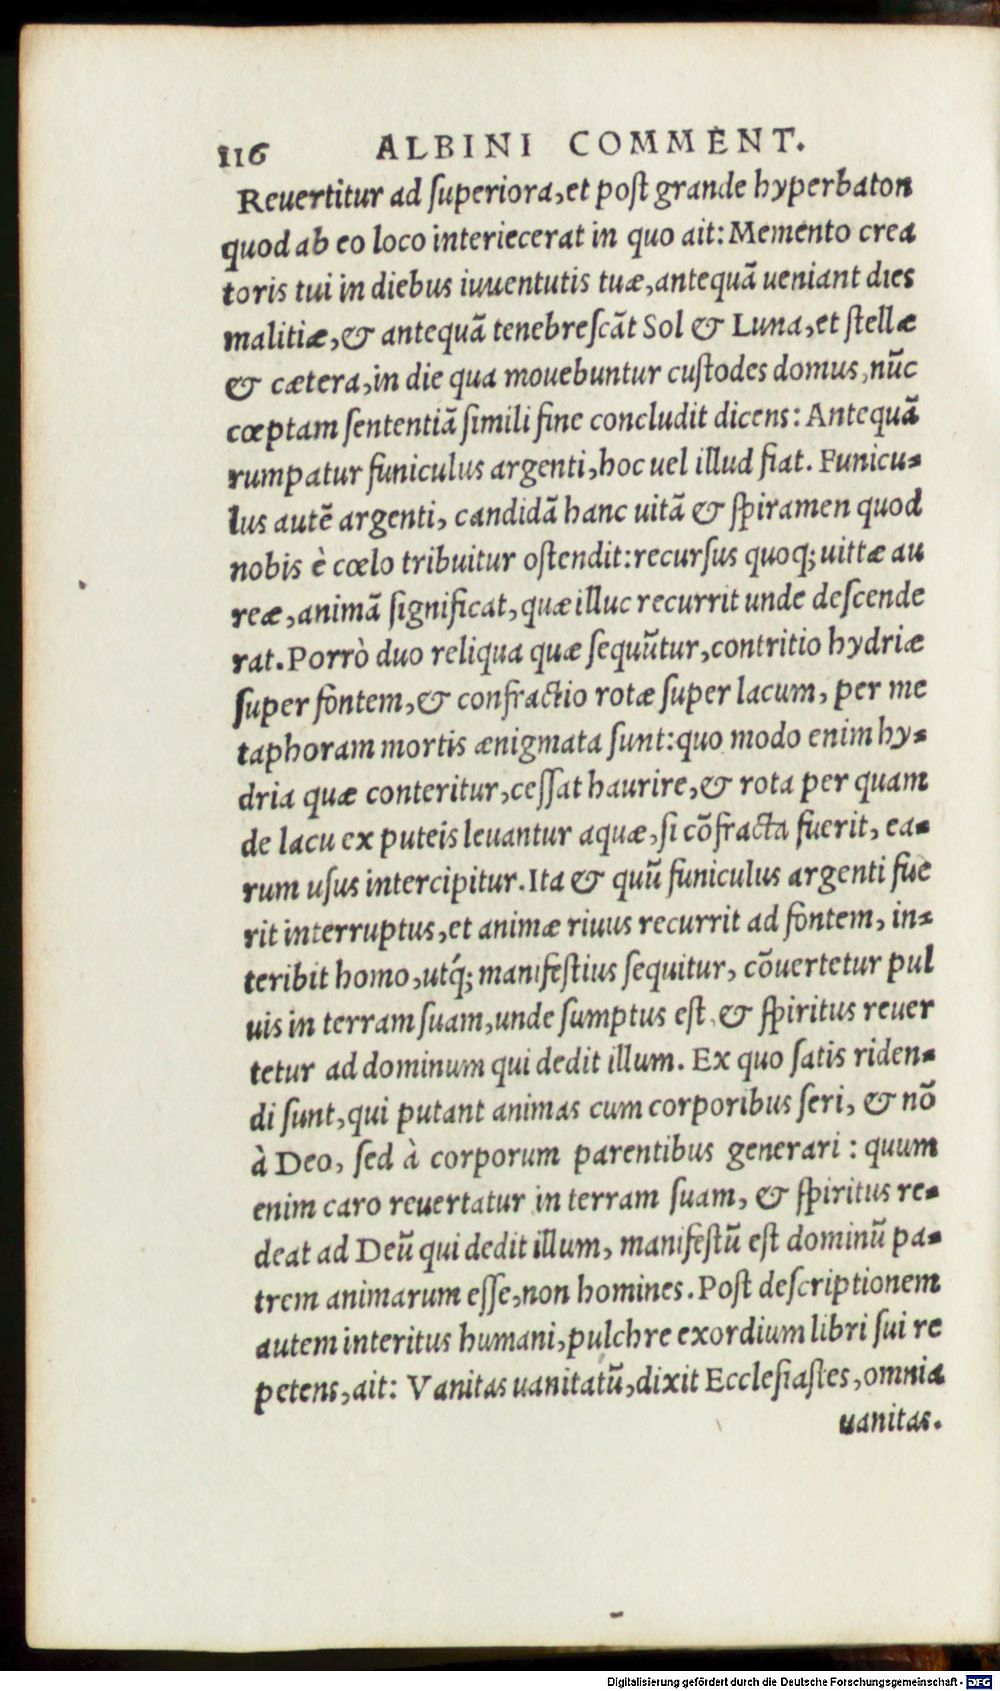 116 ALBINI COMMENT.
Reuertitur ad ſuperiora, et poſt grande hyperbaton
quod ab eo loco interiecerat in quo ait: Memento crea
toris tui in diebus iuuentutis tuæ, antequã ueniant dies
malitiæ, & antequã tenebreſcãt Sol & Luna, et ſtellæ
& cætera, in die qua mouebuntur cuſtodes domus, nũc
cœptam ſententiã ſimili fine concludit dicens: Antequã
rumpatur funiculus argenti, hoc uel illud fiat. Funicu-
lus autẽ argenti, candidã hanc uitã & ſpiramen quod
nobis è cœlo tribuitur oſtendit: recurſus quoq; uittæ au
reæ, animã ſignificat, quæ illuc recurrit unde deſcende
rat. Porrò duo reliqua quæ ſequũtur, contritio hydriæ
ſuper fontem, & confractio rotæ ſuper lacum, per me
taphoram mortis ænigmata ſunt: quo modo enim hy-
dria quæ conteritur, ceſſat haurire, & rota per quam
de lacu ex puteis leuantur aquæ, ſi cõfracta fuerit, ea-
rum uſus intercipitur. Ita & quũ funiculus argenti fue
rit interruptus, et animæ riuus recurrit ad fontem, in-
teribit homo, utq́; manifeſtius ſequitur, cõuertetur pul
uis in terram ſuam, unde ſumptus eſt, & ſpiritus reuer
tetur ad dominum qui dedit illum. Ex quo ſatis riden-
di ſunt, qui putant animas cum corporibus ſeri, & nõ
à Deo, ſed à corporum parentibus generari: quum
enim caro reuertatur in terram ſuam, & ſpiritus re-
deat ad Deũ qui dedit illum, manifeſtũ eſt dominũ pa-
trem animarum eſſe, non homines. Poſt deſcriptionem
autem interitus humani, pulchre exordium libri ſui re
petens, ait: Vanitas uanitatũ, dixit Eccleſiaſtes, omnia
uanitas.
Digitalisierung gefördert durch die Deutsche Forschungsgemeinschaft - DFG